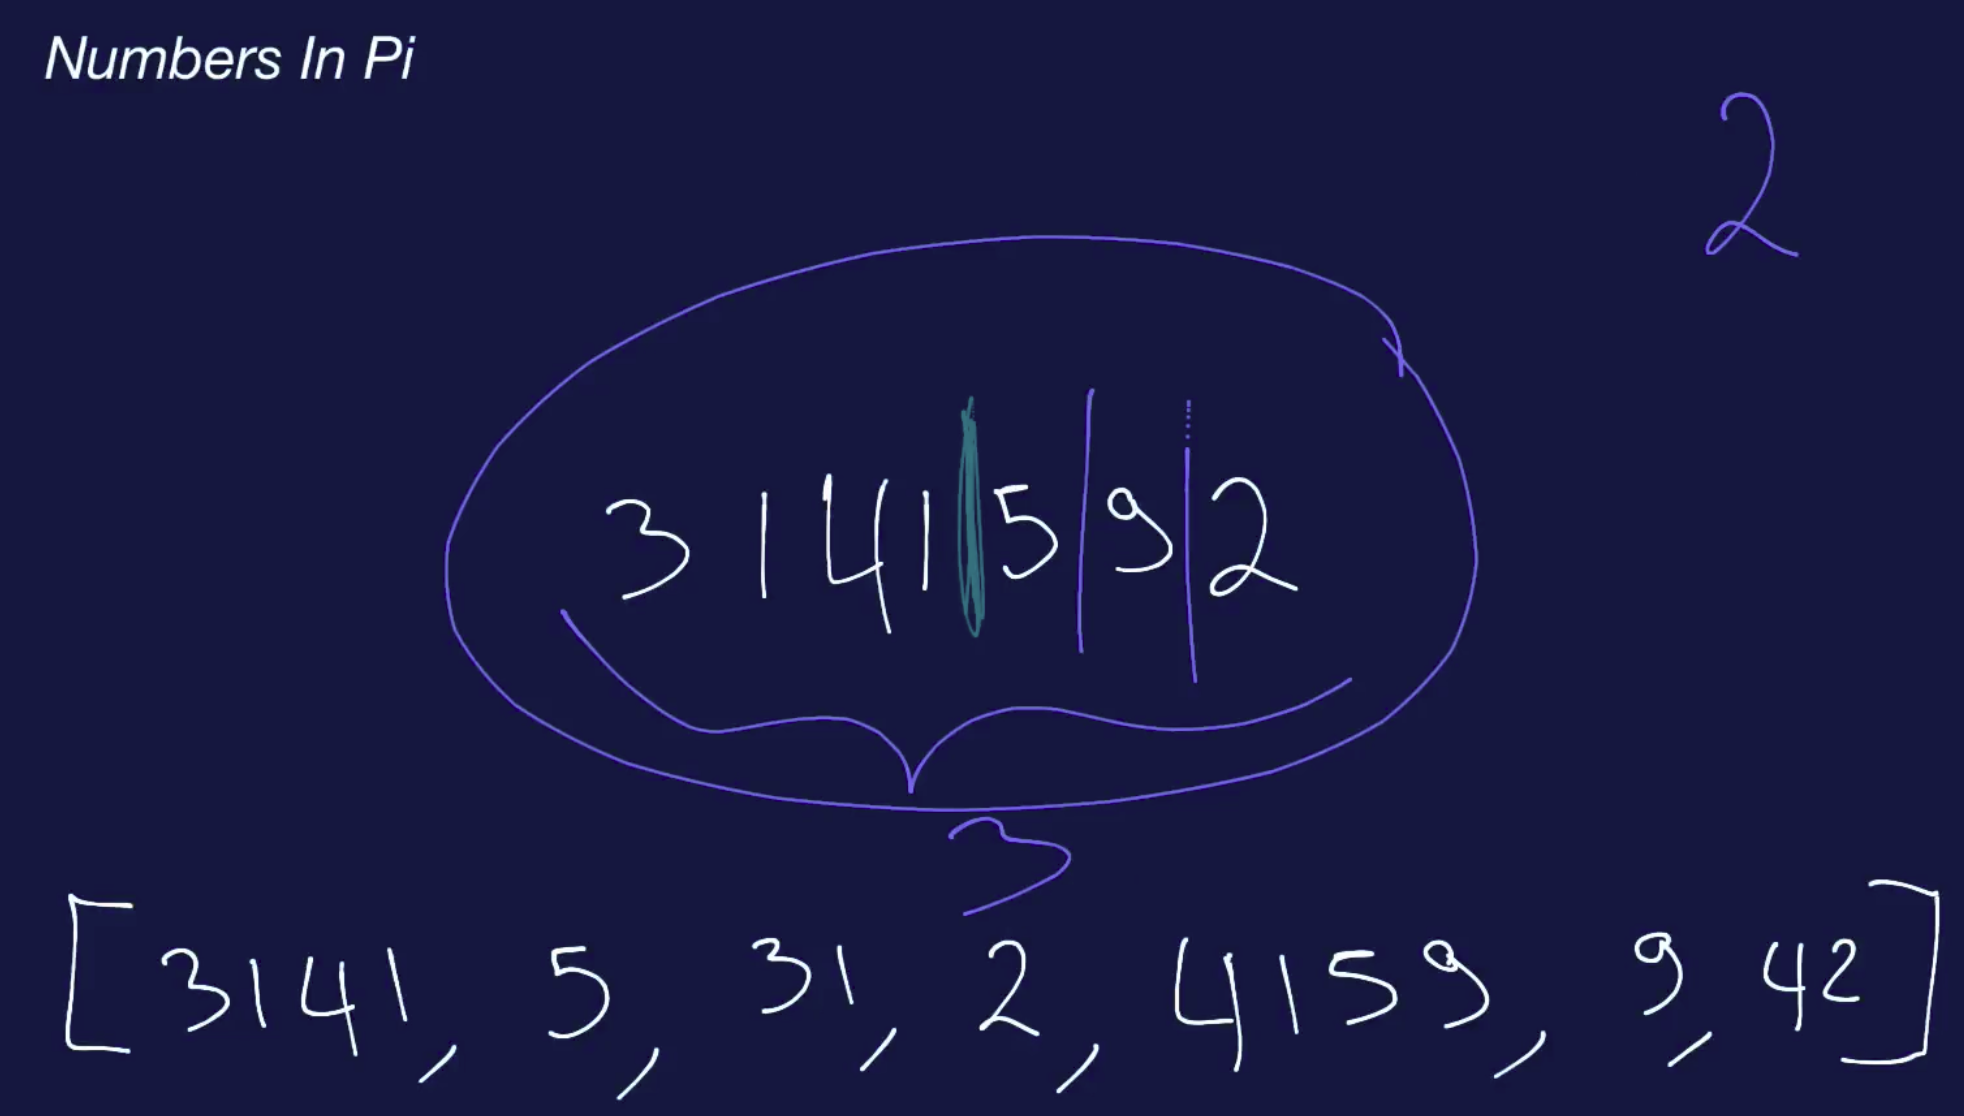 Numbers In Pi
2
3 1 4 1 5 9 2
3
[3141, 5, 31, 2, 4159, 9, 42]